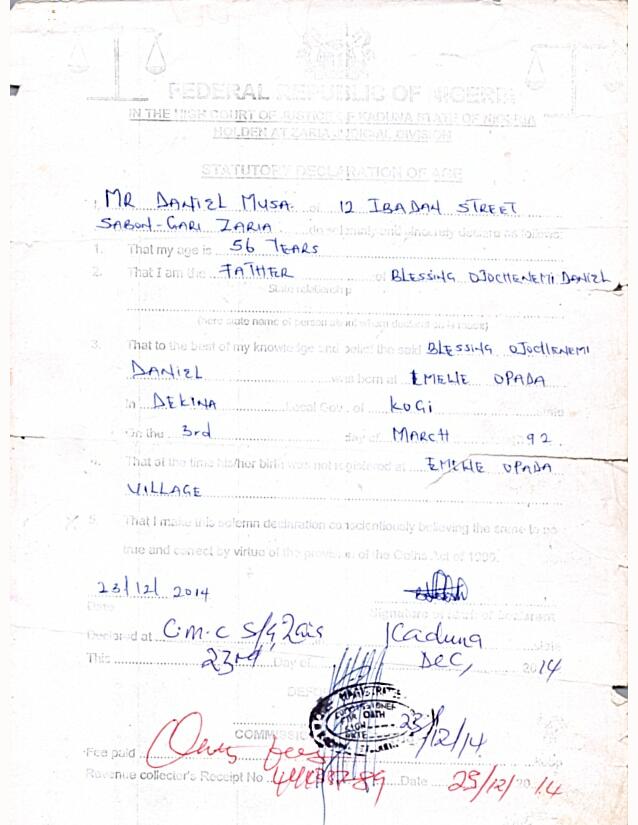 FEDERAL REPUBLIC OF NIGERIA
IN THE HIGH COURT OF JUSTICE OF KADUNA STATE OF NIGERIA
HOLDEN AT ZARIA JUDICIAL DIVISION
STATUTORY DECLARATION OF AGE
I, MR DANIEL MUSA of 12 IBADAN STREET
SABON-GARI ZARIA do solemnly and sincerely declare as follows:
1. That my age is 56 YEARS
2. That I am the FATHER of BLESSING OJOCHENEMI DANIEL
State relationship
(here state name of person about whom declaration is made)
3. That to the best of my knowledge and belief the said BLESSING OJOCHENEMI
DANIEL was born at EMELIE OPADA
in DEKINA Local Gov. of KOGI State
On the 3rd day of MARCH 92.
4. That at the time his/her birth was not registered at EMELIE OPADA
VILLAGE
5. That I make this solemn declaration conscientiously believing the same to be
true and correct by virtue of the provision of the Oaths Act of 1990.
23/12/2014
Date Signature of Declarant
Declared at C.M.C S/G Kaduna State
This 23rd Day of DEC, 2014
MAGISTRATE
COMMISSIONER
FOR OATH
SIGN
DATE 23/12/14.
COMMISSIONER
Fee paid
Revenue collector's Receipt No Date 23/12/2014